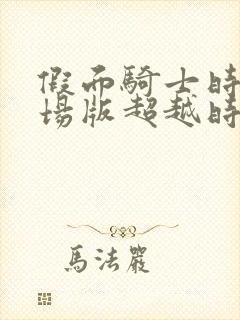 假面騎士時
場版超越時
馬法嚴